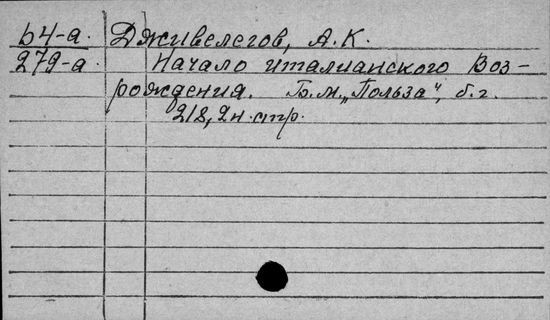 b4-a. Дживелегов, А.К.
279-a. Начало италианского Воз-
рождения. Б.м. „Польза", б.г.
218, 2н.стр.